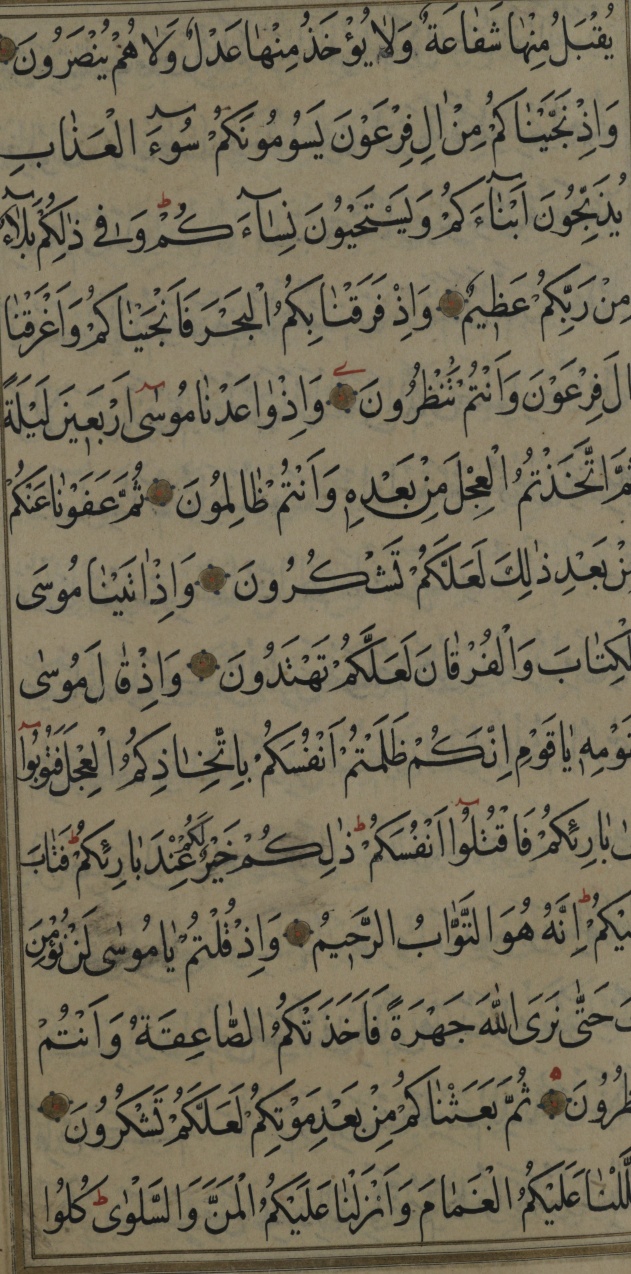 يُقْبَلُ مِنْهَا شَفَاعَةٌ وَلَا يُؤْخَذُ مِنْهَا عَدْلٌ وَلَا هُمْ يُنْصَرُونَ
وَاِذْ نَجَّيْنَاكُمْ مِنْ اٰلِ فِرْعَوْنَ يَسُومُونَكُمْ سُوٓءَ الْعَذَابِ
يُذَبِّحُونَ اَبْنَآءَكُمْ وَيَسْتَحْيُونَ نِسَآءَكُمْ ط وَفِي ذٰلِكُمْ بَلَآءٌ
مِنْ رَبِّكُمْ عَظِيمٌ وَاِذْ فَرَقْنَا بِكُمُ الْبَحْرَ فَاَنْجَيْنَاكُمْ وَاَغْرَقْنَا
اٰلَ فِرْعَوْنَ وَاَنْتُمْ تَنْظُرُونَ وَاِذْ وَاعَدْنَا مُوسٰٓى اَرْبَعِينَ لَيْلَةً
ثُمَّ اتَّخَذْتُمُ الْعِجْلَ مِنْ بَعْدِهٖ وَاَنْتُمْ ظَالِمُونَ ثُمَّ عَفَوْنَا عَنْكُمْ
مِنْ بَعْدِ ذٰلِكَ لَعَلَّكُمْ تَشْكُرُونَ وَاِذْ اٰتَيْنَا مُوسَى
الْكِتَابَ وَالْفُرْقَانَ لَعَلَّكُمْ تَهْتَدُونَ وَاِذْ قَالَ مُوسٰى
لِقَوْمِهٖ يَا قَوْمِ اِنَّكُمْ ظَلَمْتُمْ اَنْفُسَكُمْ بِاتِّخَاذِكُمُ الْعِجْلَ فَتُوبُوٓا
اِلٰى بَارِئِكُمْ فَاقْتُلُوٓا اَنْفُسَكُمْ ط ذٰلِكُمْ خَيْرٌ لَكُمْ عِنْدَ بَارِئِكُمْ ط فَتَابَ
عَلَيْكُمْ ط اِنَّهُ هُوَ التَّوَّابُ الرَّحِيمُ وَاِذْ قُلْتُمْ يَا مُوسٰى لَنْ نُؤْمِنَ
لَكَ حَتّٰى نَرَى اللّٰهَ جَهْرَةً فَاَخَذَتْكُمُ الصَّاعِقَةُ وَاَنْتُمْ
تَنْظُرُونَ ثُمَّ بَعَثْنَاكُمْ مِنْ بَعْدِ مَوْتِكُمْ لَعَلَّكُمْ تَشْكُرُونَ
وَظَلَّلْنَا عَلَيْكُمُ الْغَمَامَ وَاَنْزَلْنَا عَلَيْكُمُ الْمَنَّ وَالسَّلْوٰى ط كُلُوا